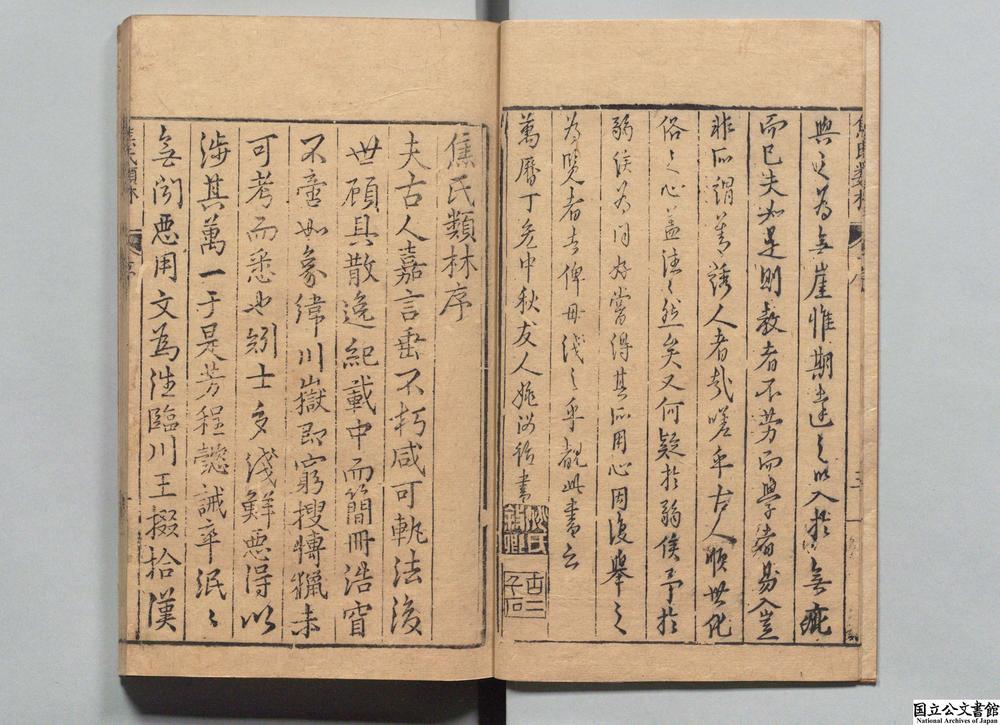 與之為無崖惟期達之以入於無疵
而已夫如是則教者不勞而學者易入豈
非所謂善誘人者哉嗟乎古人順世化
俗之心盖往〻然矣又何疑於弱侯予於
弱侯為同好嘗得其所用心因復舉之
為覽者告俾毋淺之乎觀此書云
萬曆丁亥中秋友人姚汝紹書
姚氏
焦氏類林序
夫古人嘉言垂不朽咸可執法後
世顧具散逸紀載中而簡冊浩窅
不啻如象緯川嶽即窮搜慱獵未
可考而悉也矧士多淺鮮惡得以
涉其萬一于是芳程懿誡率泯〻
無聞惡用文為注臨川王掇拾漢
焦氏類林
序
国立公文書館
National Archives of Japan